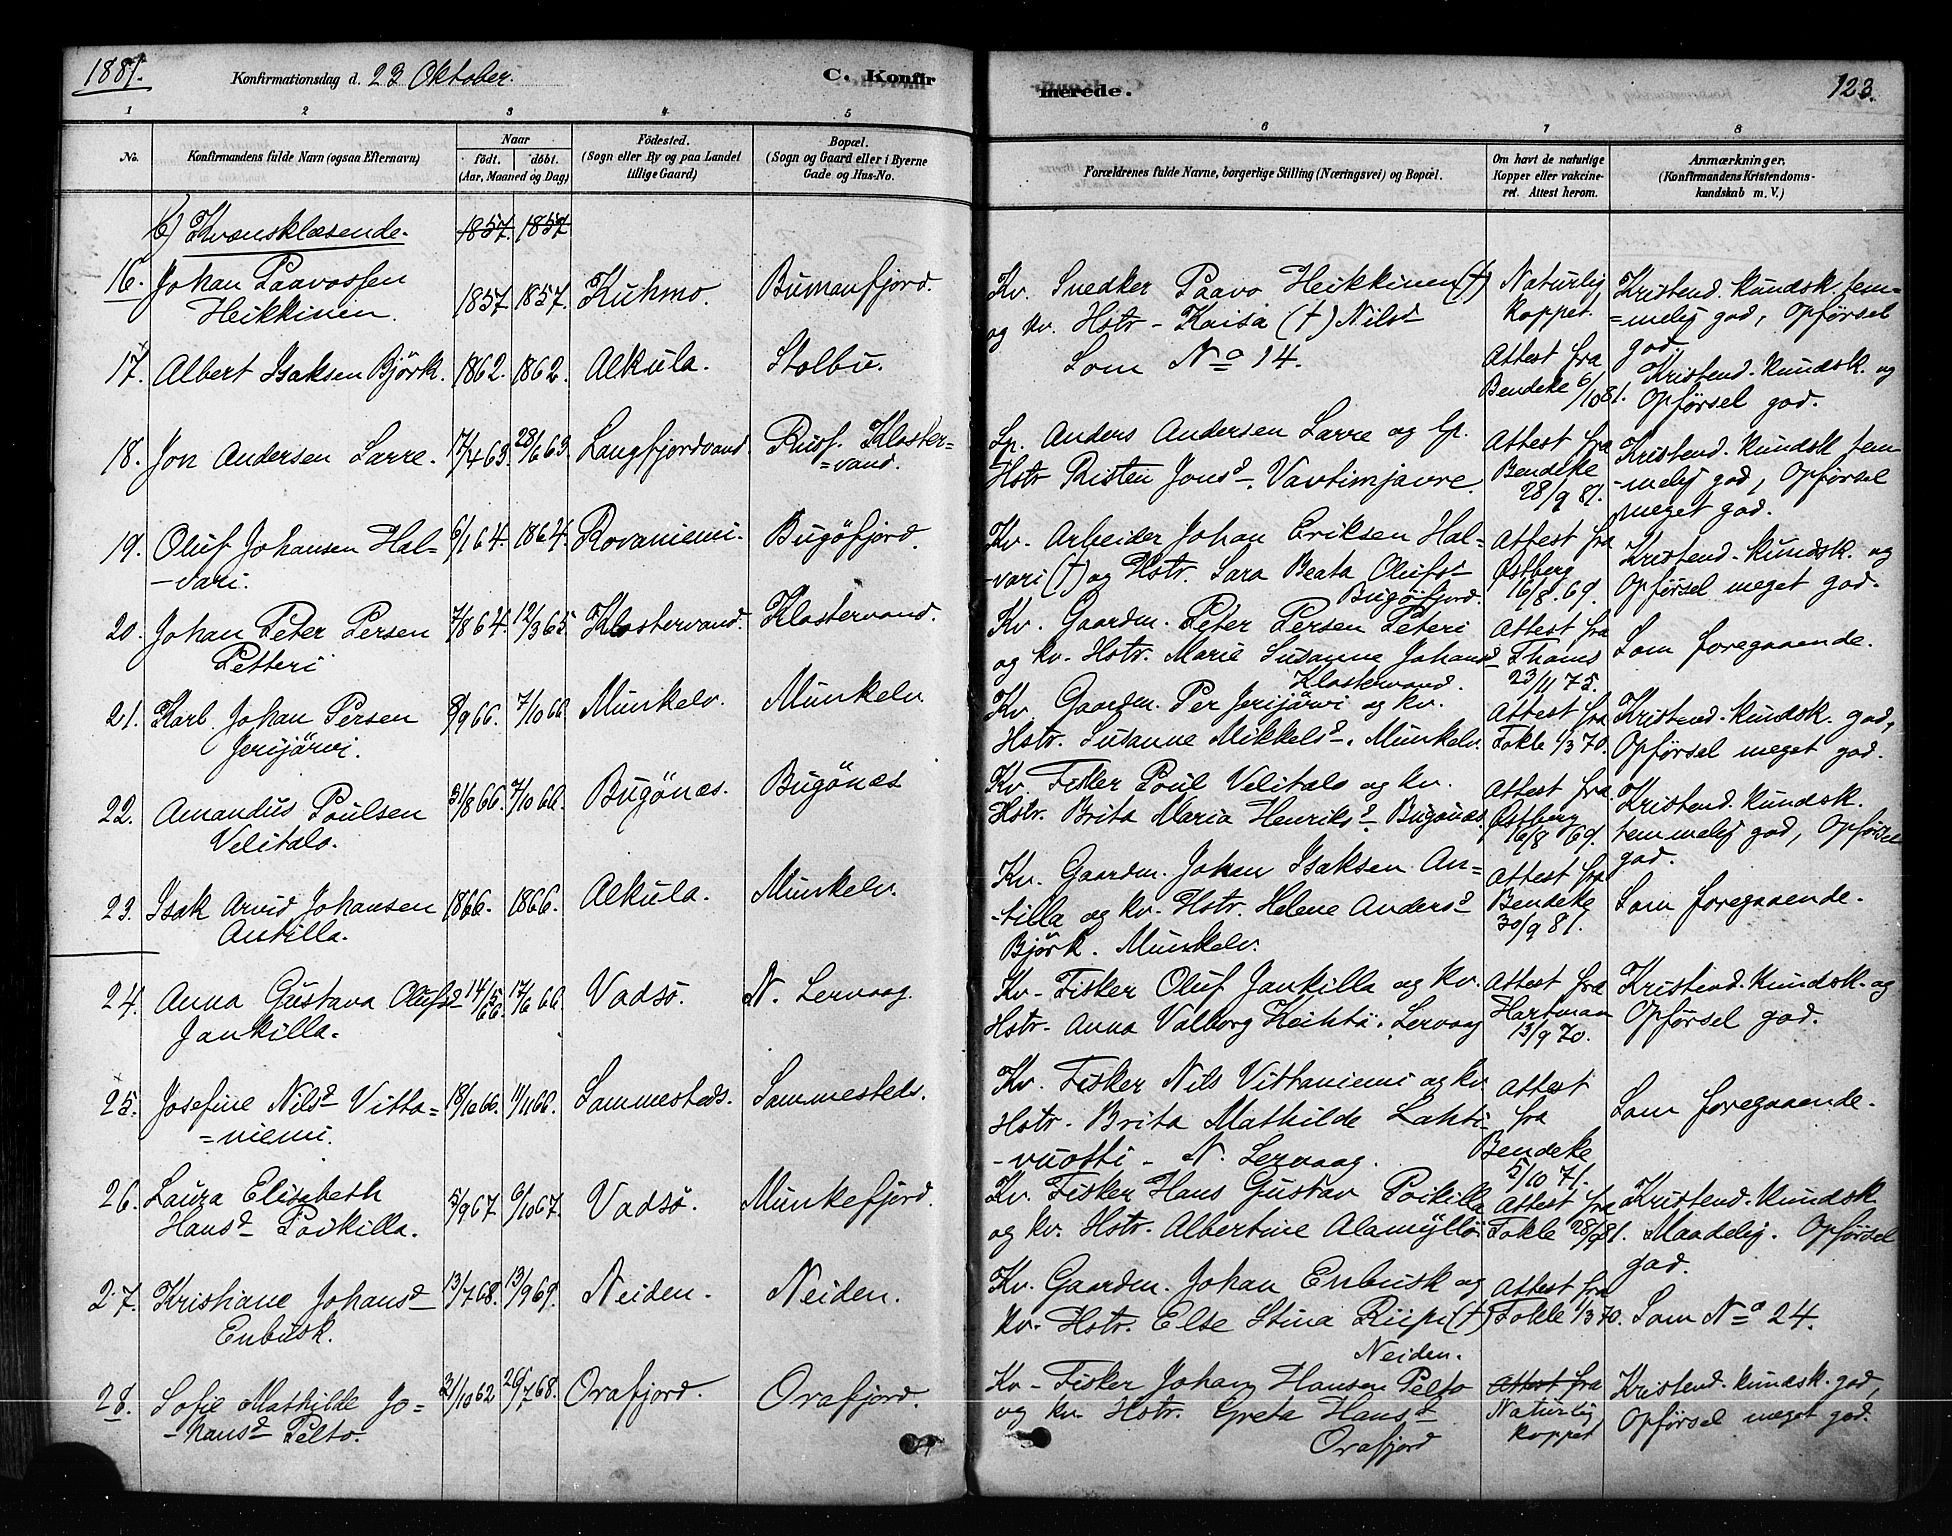 1881. Konfirmationsdag d. 23 Oktober. C. Konfir
1 2 3 4 5
No. Konfirmandens fulde Navn (ogsaa Efternavn) Naar født. døbt. (Aar, Maaned og Dag) Fødested. (Sogn eller By og paa Landet tillige Gaard) Bopæl. (Sogn og Gaard eller i Byerne Gade og Hus-No.
b) Kvænsklæsende. 1857. 1857
16. Johan Paavossen
Heikkinen. 1857. 1857. Kuhmo. Bumanfjord.
17. Albert Isaksen Björk. 1862. 1862. Alkula. Stolbu.
18. Jon Andersen Sarre. 17/4 63. 28/6 63. Langfjordvand. Russ. Kloster-
=vand.
19. Oluf Johansen Hal-
-vari. 6/1 64. 1864. Rovaniemi. Bugöfjord.
20. Johan Peter Persen
Petteri 7/8 64. 12/3 65. Klostervand. Klostervand.
21. Karl Johan Persen
Jerijärvi. 8/9 66. 7/10 66 Munkelv. Munkelv.
22. Amandus Poulsen
Velitalo. 31/8 66. 7/10 66 Bugönæs. Bugönæs
23. Isak Arvid Johansen
Antilla. 1866. 1866. Alkula. Munkelv.
24. Anna Gustava Olufsd
Jankilla. 14/5 66. 17/6 66 Vadsö. N. Lervaag.
25. Josefine Nilsd Vitta=
=niemi. 18/10 66. 11/11 66. Sammesteds. Sammesteds.
26. Laura Elisabeth
Hansd Poikilla. 5/9 67 6/10 67. Vadsö. Munkefjord.
27. Kristiane Johansd
Enbusk. 13/7 68. 13/9 69. Neiden. Neiden.
28. Sofie Mathilde Jo=
-hansd Pelto. 31/10 62 26/7 68. Orafjord. Orafjord.
merede. 123.
6 7 8
Forældrenes fulde Navne, borgerlige Stilling (Næringsvei) og Bopæl. Om havt de naturlige Kopper eller vakcineret. Attest herom. Anmærkninger. (Konfirmandens Kristendomskundskab m. V.)
Kv. Snedker Paavo Heikkinen (†) Naturlig Kristend. kundsk. tem=
og kv. Hstr - Kaisa (†) Nilsd koppet. =melig god, Opførsel
god.
Som No 14. Attest fra Kristend. kundsk. og
Bendeke 6/10 81. Opførsel god.
Lp. Anders Andersen Sarre og lp. Attest fra Kristend. kundsk tem-
Hstr Risten Jonsd. Vavtimjavre. Bendeke -melig god, Opførsel
28/9 81. meget god.
Kv. Arbeider Johan Eriksen Hal- Attest fra Kristend. kundsk. og
-vari (†) og Hstr. Sara Beata Olufsd Østberg Opførsel meget god.
Bugöfjord. 16/8. 69.
Kv. Gaardm. Peter Persen Peteri Attest fra Som foregaaende.
og kv. Hstr. Marie Susanne Johansd Thams
Klostervand. 23/11 75.
Kv. Gaardm. Per Jerijärvi og kv. Attest fra Kristend. kundsk. god,
Hstr. Susanne Mikkelsd. Munkelv. Fokle 1/3 70. Opførsel meget god.
Kv. Fisker Poul Velitalo og kv. Attest fra Kristend. kundsk.
Hstr. Brita Maria Henriksd. Bugönæs Østberg temmelig god, Opførsel
16/8 69. god.
Kv. Gaardm. Johan Isaksen An= Attest fra Som foregaaende.
-tilla og kv. Hstr. Helene Andersd Bendeke
Björk. Munkelv. 30/9 81.
Kv. Fisker Oluf Jankilla og kv. Attest fra Kristend. kundsk. og
Hstr. Anna Valborg Keihtä. Lervaag Hartman Opførsel god.
13/9 70.
Kv. Fisker Nils Vittaniemi og kv Attest Som foregaaende.
Hstr. Brita Mathilde Lahti- fra
-vuotti - N. Lervaag. Bendeke
5/10 71.
Kv. Fisker Hans Gustav Poikilla Attest fra Kristend. kundsk
og kv. Hstr. Albertine Alamyllö Fokle 28/9 81. Maadelig. Opførsel
god.
Kv. Gaardm. Johan Enbusk og Attest fra
kv. Hstr. Else Stina Riipi (†) Fokle 1/3 70. Som No 24.
Neiden.
Kv- Fisker Johan Hansen Pelto Attest fra Kristend. kundsk. god,
og kv. Hstr. Greta Hansd Naturlig Opførsel meget god.
Orafjord koppet